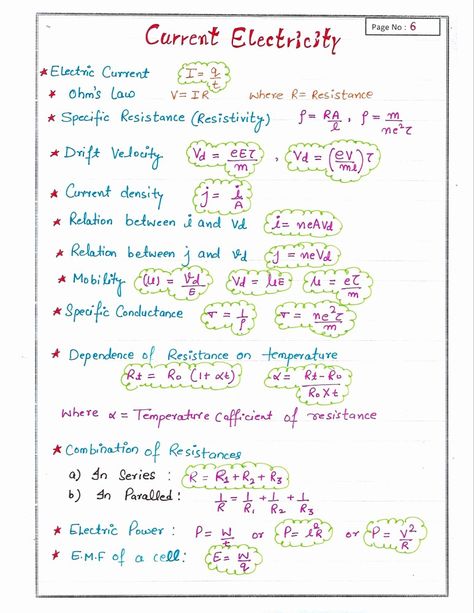 Page No : 6
Current Electricity
* Electric Current I = q/t
* Ohm's Law V = IR where R = Resistance
* Specific Resistance (Resistivity) ρ = RA/l , ρ = m/ne²τ
* Drift Velocity Vd = eEτ/m , Vd = (eV/ml)τ
* Current density j = i/A
* Relation between i and Vd i = neAVd
* Relation between j and Vd j = neVd
* Mobility (μ) = Vd/E Vd = μE μ = eτ/m
* Specific Conductance σ = 1/ρ σ = ne²τ/m
* Dependence of Resistance on temperature
Rt = R0 (1+αt) α = Rt - R0/R0 X t
Where α = Temperature Cafficient of resistance
* Combination of Resistances
a) In Series : R = R1 + R2 + R3
b) In Paralled : 1/R = 1/R1 + 1/R2 + 1/R3
* Electric Power : P = W/t or P = i²R or P = V²/R
* E.M.F of a cell : E = W/q